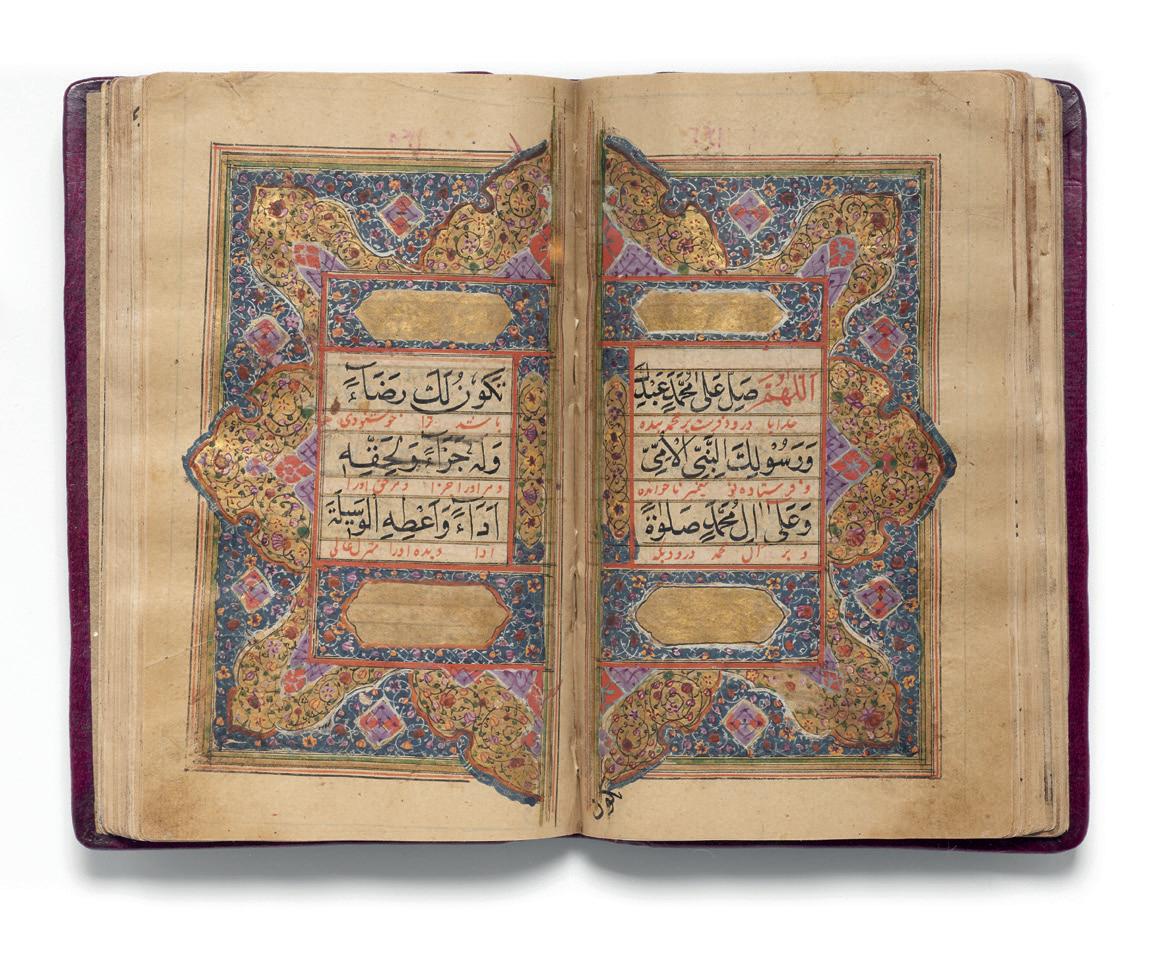 اَللّٰهُمَّ صَلِّ عَلٰى مُحَمَّدٍ عَبْدِكَ
خدایا درود فرست بر محمد بنده
وَرَسُوْلِكَ النَّبِيِّ الْاُمِّيِّ
و فرستاده تو پیغمبر ناخوانده
وَعَلٰى اٰلِ مُحَمَّدٍ صَلٰوةً
و بر آل محمد درودیکه
تكون
تَكُوْنُ لَكَ رِضَاءً
باشد ترا خوشنودی
وَلَهٗ جَزَاءً وَلِحَقِّهٖ
و مر اورا جزا و مر حق اورا
اَدَاءً وَاَعْطِهِ الْوَسِيْلَةَ
ادا و بده اورا منزل عالی